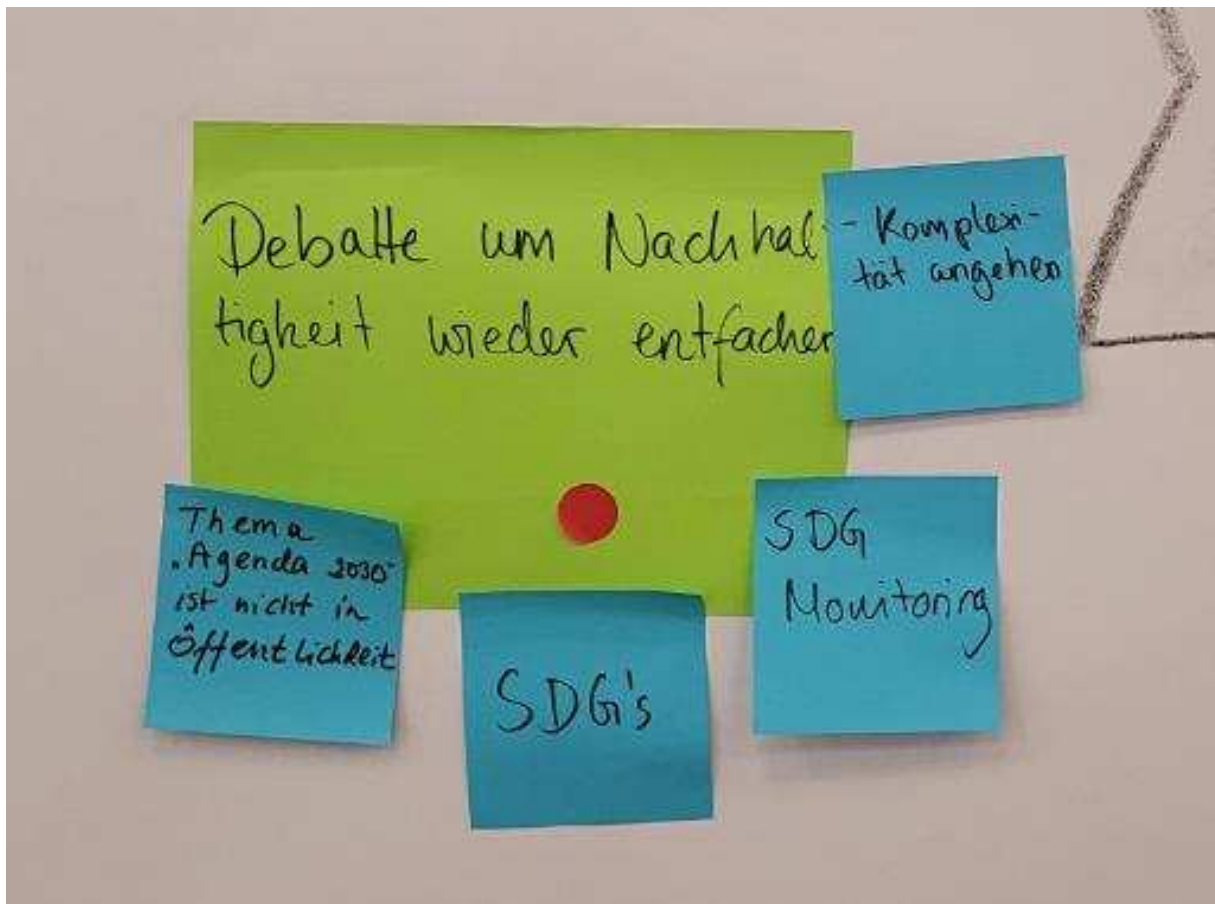 Debatte um Nachhal-
tigkeit wieder entfachen
- Komplexi-
tät angehen
Thema
„Agenda 2030"
ist nicht in
Öffentlichkeit
SDG's
SDG
Monitoring